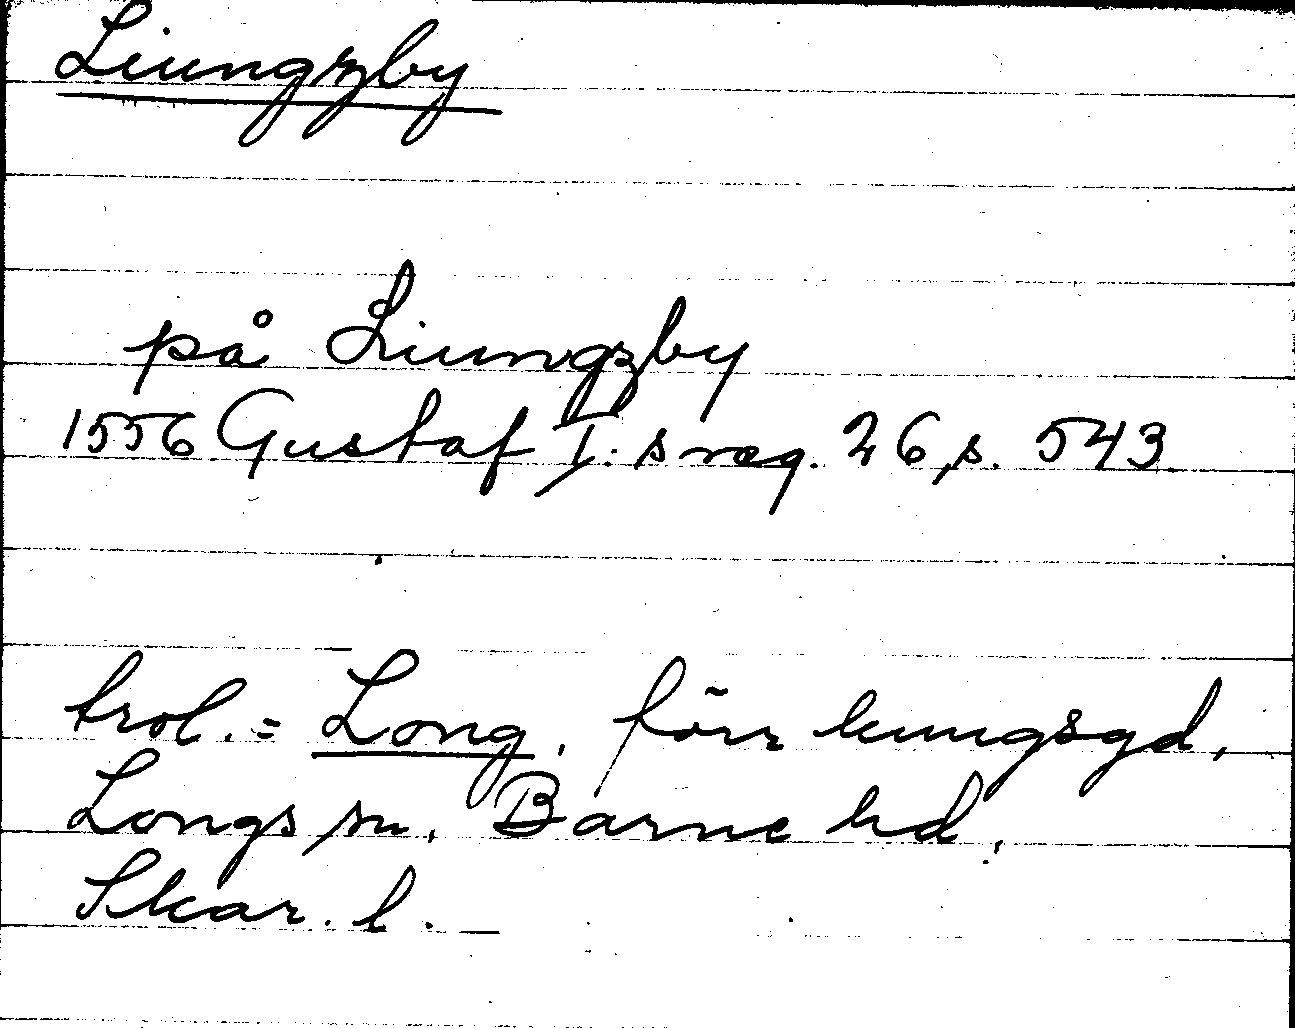 Liungzby
på Liungzby
1556 Gustaf I:s reg. 26, s. 543
trol. = Long, förr kungsgd,
Longs sn, Barne hd,
Skar. l.